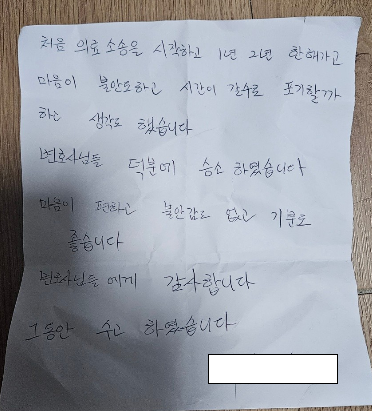 처음 의료 소송을 시작하고 1년 2년 한해가고
마음이 불안도하고 시간이 갈수록 포기할까
하고 생각도 했습니다
변호사님들 덕분에 승소 하였습니다
마음이 편하고 불안감도 없고 기분도
좋습니다
변호사님들에게 감사합니다
그동안 수고 하였습니다